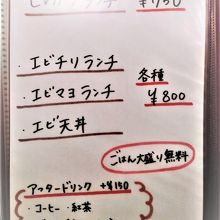 ランチ ¥750
・エビチリランチ
・エビマヨランチ
各種
¥800
・エビ天丼
ごはん大盛り無料
アフタードリンク +¥150
・コーヒー ・紅茶